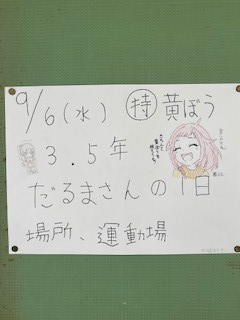 9/6(水) ㊕黄ぼう
3.5年
だるまさんの1日
場所、運動場